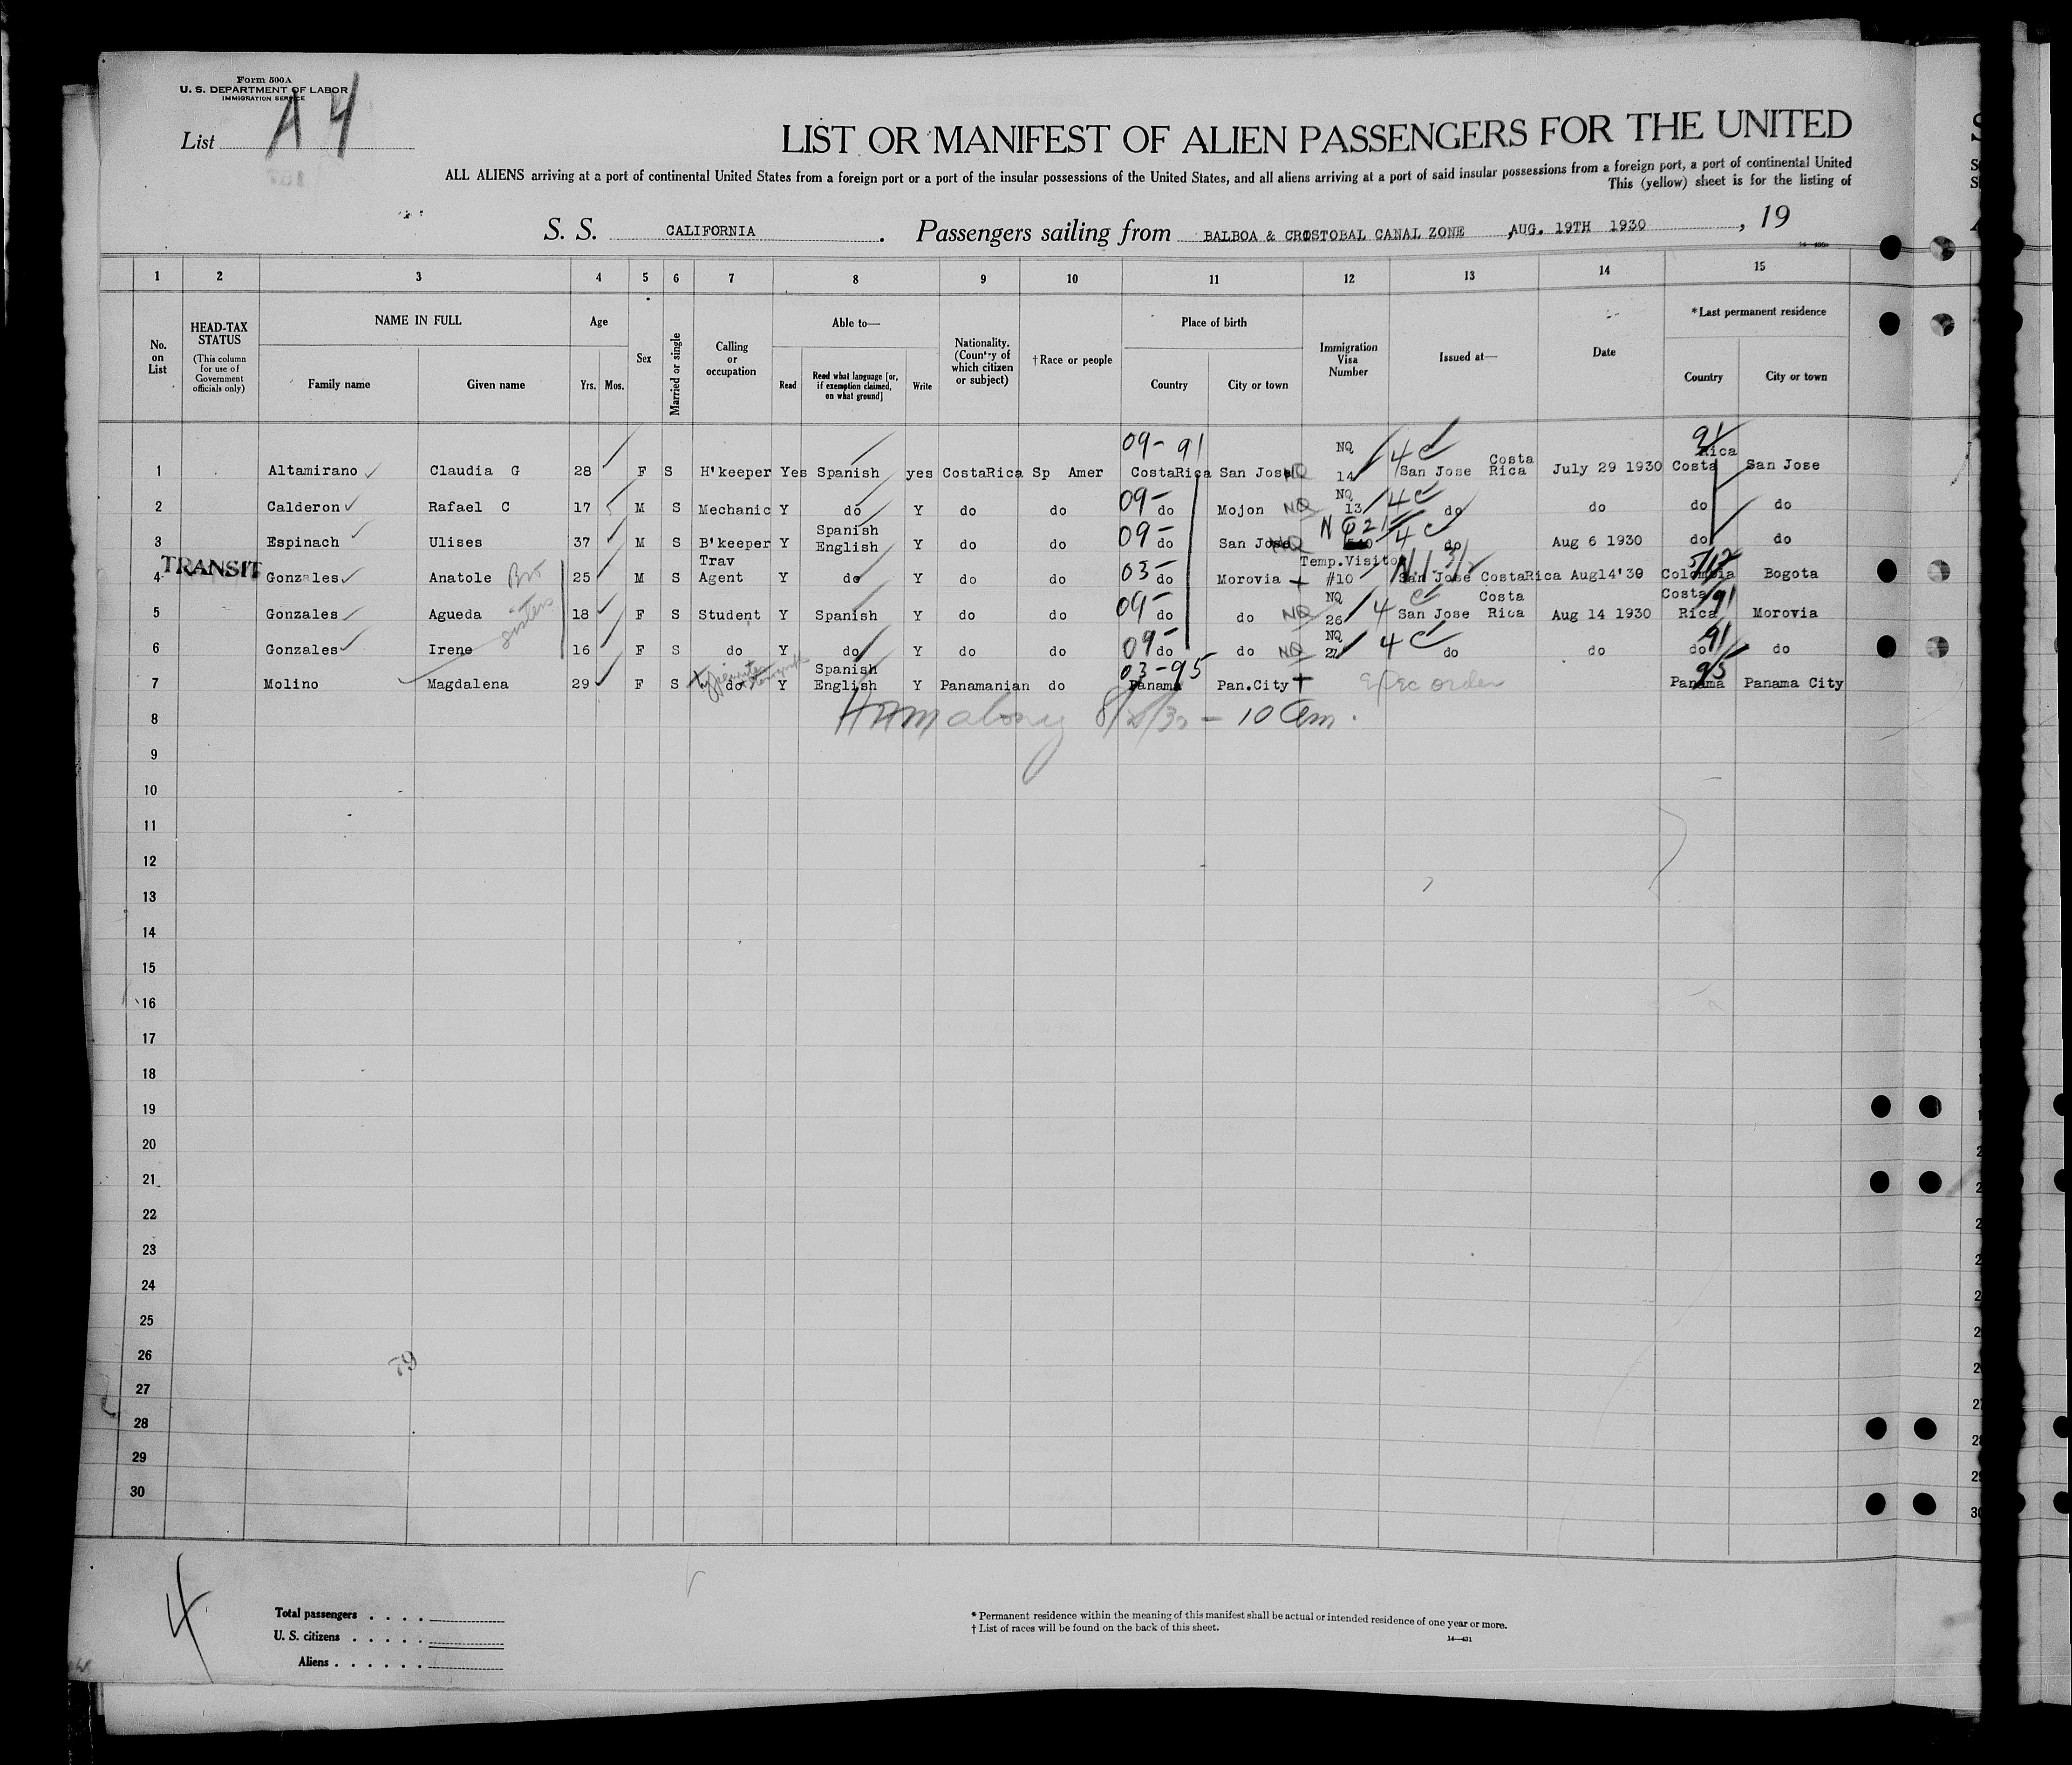 Form 500A
U. S. DEPARTMENT OF LABOR
IMMIGRATION SERVICE
List A 4
LIST OR MANIFEST OF ALIEN PASSENGERS FOR THE UNITED
ALL ALIENS arriving at a port of continental United States from a foreign port or a port of the insular possessions of the United States, and all aliens arriving at a port of said insular possessions from a foreign port, a port of continental United
This (yellow) sheet is for the listing of
S. S. CALIFORNIA . Passengers sailing from BALBOA & CRISTOBAL CANAL ZONE , AUG. 19TH 1930 , 19
1 2 3 4 5 6 7 8 9 10 11 12 13 14 15
No. on List
HEAD-TAX STATUS
(This column for use of Government officials only)
NAME IN FULL
Family name Given name
Age
Yrs. Mos.
Sex
Married or single
Calling or occupation
Able to—
Read Read what language [or, if exemption claimed, on what ground] Write
Nationality. (Country of which citizen or subject)
†Race or people
Place of birth
Country City or town
Immigration Visa Number
Issued at—
Date
*Last permanent residence
Country City or town
09- 91 NQ 4 C 91
1 Altamirano Claudia G 28 F S H'keeper Yes Spanish yes CostaRica Sp Amer CostaRica San Jose NQ 14 San Jose Costa Rica July 29 1930 Costa Rica San Jose
2 Calderon Rafael C 17 M S Mechanic Y do Y do do 09- do Mojon NQ NQ 13 4 C do do do do
3 Espinach Ulises 37 M S B'keeper Y Spanish English Y do do 09- do San Jose NQ NQ 21 4 C do Aug 6 1930 do do
TRANSIT
4 Gonzales Anatole Bro 25 M S Trav Agent Y do Y do do 03- do Morovia + Temp.Visitor #10 San Jose CostaRica Aug14'30 Colombia Bogota
5 Gonzales Agueda sisters 18 F S Student Y Spanish Y do do 09- do do NQ NQ 26 4 C San Jose Costa Rica Aug 14 1930 Costa Rica 91 Morovia
6 Gonzales Irene 16 F S do Y do Y do do 09- do do NQ NQ 27 4 C do do do 91 do
7 Molino Magdalena 29 F S do Y Spanish English Y Panamanian do 03-95 Panama Pan.City + Exec order 95 Panama Panama City
8 - 10 am.
9
10
11
12
13
14
15
16
17
18
19
20
21
22
23
24
25
26
27
28
29
30
79
4
Total passengers
U. S. citizens
Aliens
* Permanent residence within the meaning of this manifest shall be actual or intended residence of one year or more.
† List of races will be found on the back of this sheet.
14—431